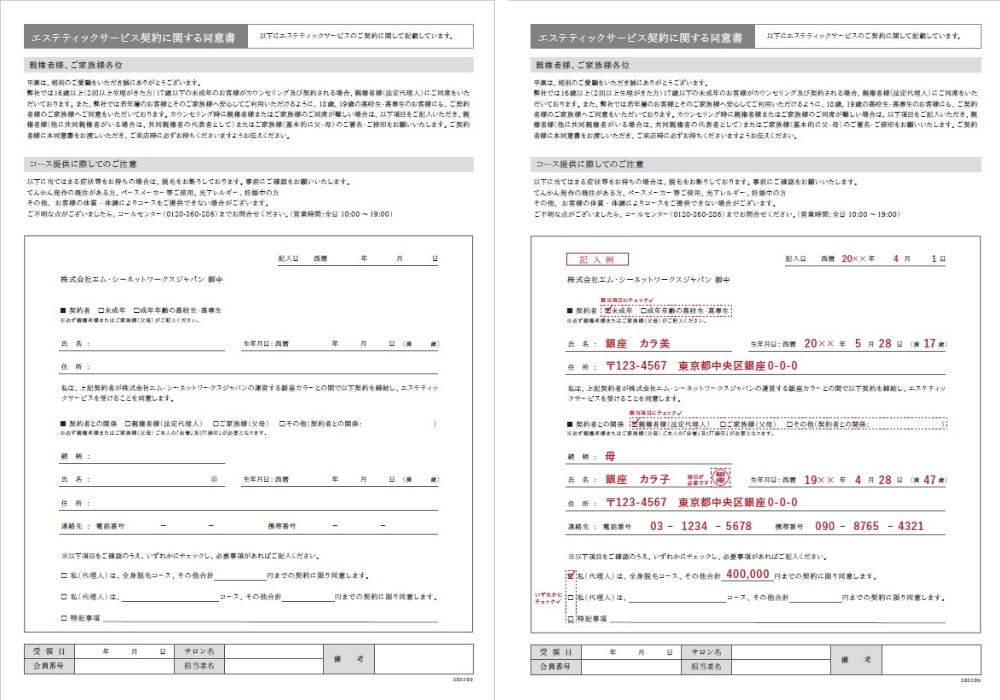 エステティックサービス契約に関する同意書
以下にエステティックサービスのご契約に関して記載しています。
親権者様、ご家族様各位
平素は、格別のご愛顧をいただき誠にありがとうございます。
弊社では16歳以上(2回以上生理がきた方)17歳以下の未成年のお客様がカウンセリング及び契約される場合、親権者様(法定代理人)にご同席をいた
だいております。また、弊社では若年層のお客様とそのご家族様へ安心してご利用いただけるように、18歳、19歳の高校生・高専生のお客様にも、ご契約
者様のご家族様へご同席をいただいております。カウンセリング時に親権者様またはご家族様のご同席が難しい場合は、以下項目をご記入いただき、親
権者様(他に共同親権者がいる場合は、共同親権者の代表者として)またはご家族様(基本的に父・母)のご署名・ご捺印をお願いいたします。ご契約
者様に本同意書をお渡しいただき、ご来店時に必ずお持ちくださいますようお伝えください。
コース提供に際してのご注意
以下に当てはまる症状等をお持ちの場合は、脱毛をお断りしております。事前にご確認をお願いいたします。
てんかん発作の既往がある方、ペースメーカー等ご使用、光アレルギー、妊娠中の方
その他、お客様の体質・体調によりコースをご提供できない場合がございます。
ご不明な点がございましたら、コールセンター(0120-360-286)までお問合せください。(営業時間:全日 10:00～19:00)
記入日 西暦 年 月 日
株式会社エム・シーネットワークスジャパン 御中
■ 契約者 □未成年 □成年年齢の高校生・高専生
※必ず親権者様またはご家族様(父母)がご記入ください。
氏 名 : 生年月日:西暦 年 月 日 (満 歳)
住 所 :
私は、上記契約者が株式会社エム・シーネットワークスジャパンの運営する銀座カラーとの間で以下契約を締結し、エステティッ
クサービスを受けることを同意します。
■ 契約者との関係 □親権者様(法定代理人) □ご家族様(父母) □その他(契約者との関係: )
※必ず親権者様またはご家族様(父母)ご本人の「自署」及び「捺印」が必要となります。
続 柄 :
氏 名 : ㊞ 生年月日:西暦 年 月 日 (満 歳)
住 所 :
連絡先 : 電話番号 － － 携帯番号 － －
※以下項目をご確認のうえ、いずれかにチェックし、必要事項があればご記入ください。
□ 私(代理人)は、全身脱毛コース、その他合計 円までの契約に限り同意します。
□ 私(代理人)は、 コース、その他合計 円までの契約に限り同意します。
□ 特記事項
受 領 日 年 月 日 サロン名 備 考
会員番号 担当者名
エステティックサービス契約に関する同意書
以下にエステティックサービスのご契約に関して記載しています。
親権者様、ご家族様各位
平素は、格別のご愛顧をいただき誠にありがとうございます。
弊社では16歳以上(2回以上生理がきた方)17歳以下の未成年のお客様がカウンセリング及び契約される場合、親権者様(法定代理人)にご同席をいた
だいております。また、弊社では若年層のお客様とそのご家族様へ安心してご利用いただけるように、18歳、19歳の高校生・高専生のお客様にも、ご契約
者様のご家族様へご同席をいただいております。カウンセリング時に親権者様またはご家族様のご同席が難しい場合は、以下項目をご記入いただき、親
権者様(他に共同親権者がいる場合は、共同親権者の代表者として)またはご家族様(基本的に父・母)のご署名・ご捺印をお願いいたします。ご契約
者様に本同意書をお渡しいただき、ご来店時に必ずお持ちくださいますようお伝えください。
コース提供に際してのご注意
以下に当てはまる症状等をお持ちの場合は、脱毛をお断りしております。事前にご確認をお願いいたします。
てんかん発作の既往がある方、ペースメーカー等ご使用、光アレルギー、妊娠中の方
その他、お客様の体質・体調によりコースをご提供できない場合がございます。
ご不明な点がございましたら、コールセンター(0120-360-286)までお問合せください。(営業時間:全日 10:00～19:00)
記 入 例
記入日 西暦 20×× 年 4 月 1 日
株式会社エム・シーネットワークスジャパン 御中
該当項目にチェック✓
■ 契約者 ☑未成年 □成年年齢の高校生・高専生
※必ず親権者様またはご家族様(父母)がご記入ください。
氏 名 : 銀座 カラ美 生年月日:西暦 20×× 年 5 月 28 日 (満 17 歳)
住 所 : 〒123-4567 東京都中央区銀座0-0-0
私は、上記契約者が株式会社エム・シーネットワークスジャパンの運営する銀座カラーとの間で以下契約を締結し、エステティッ
クサービスを受けることを同意します。
該当項目にチェック✓
■ 契約者との関係 ☑親権者様(法定代理人) □ご家族様(父母) □その他(契約者との関係: )
※必ず親権者様またはご家族様(父母)ご本人の「自署」及び「捺印」が必要となります。
続 柄 : 母
氏 名 : 銀座 カラ子 捺印が必要です 銀座 生年月日:西暦 19×× 年 4 月 28 日 (満 47 歳)
住 所 : 〒123-4567 東京都中央区銀座0-0-0
連絡先 : 電話番号 03 － 1234 － 5678 携帯番号 090 － 8765 － 4321
※以下項目をご確認のうえ、いずれかにチェックし、必要事項があればご記入ください。
☑ 私(代理人)は、全身脱毛コース、その他合計 400,000 円までの契約に限り同意します。
いずれかにチェック✓
□ 私(代理人)は、 コース、その他合計 円までの契約に限り同意します。
□ 特記事項
受 領 日 年 月 日 サロン名 備 考
会員番号 担当者名